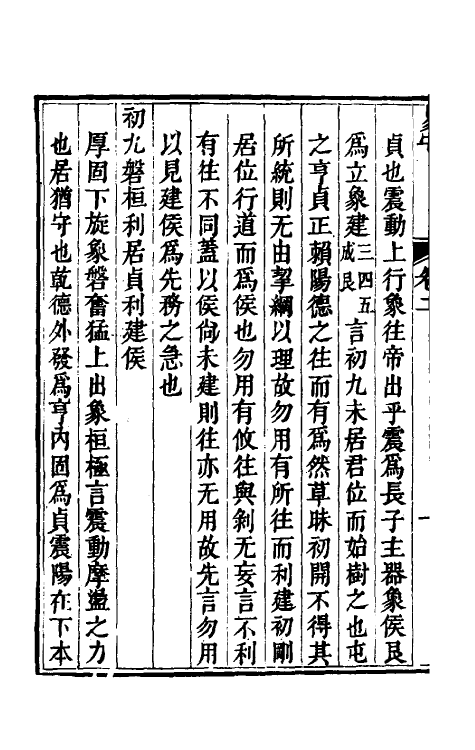 卷二
一
貞也震動上行象往帝出乎震為長子主器象侯艮
為立象建三四五成艮言初九未居君位而始樹之也屯
之亨貞正賴陽德之往而有為然草昧初開不得其
所統則无由挈綱以理故勿用有所往而利建初剛
居位行道而為侯也勿用有攸往與剝无妄言不利
有往不同蓋以侯尙未建則往亦无用故先言勿用
以見建侯為先務之急也
初九磐桓利居貞利建侯
厚固下旋象磐奮猛上出象桓極言震動摩盪之力
也居猶守也乾德外發為亨內固為貞震陽在下本